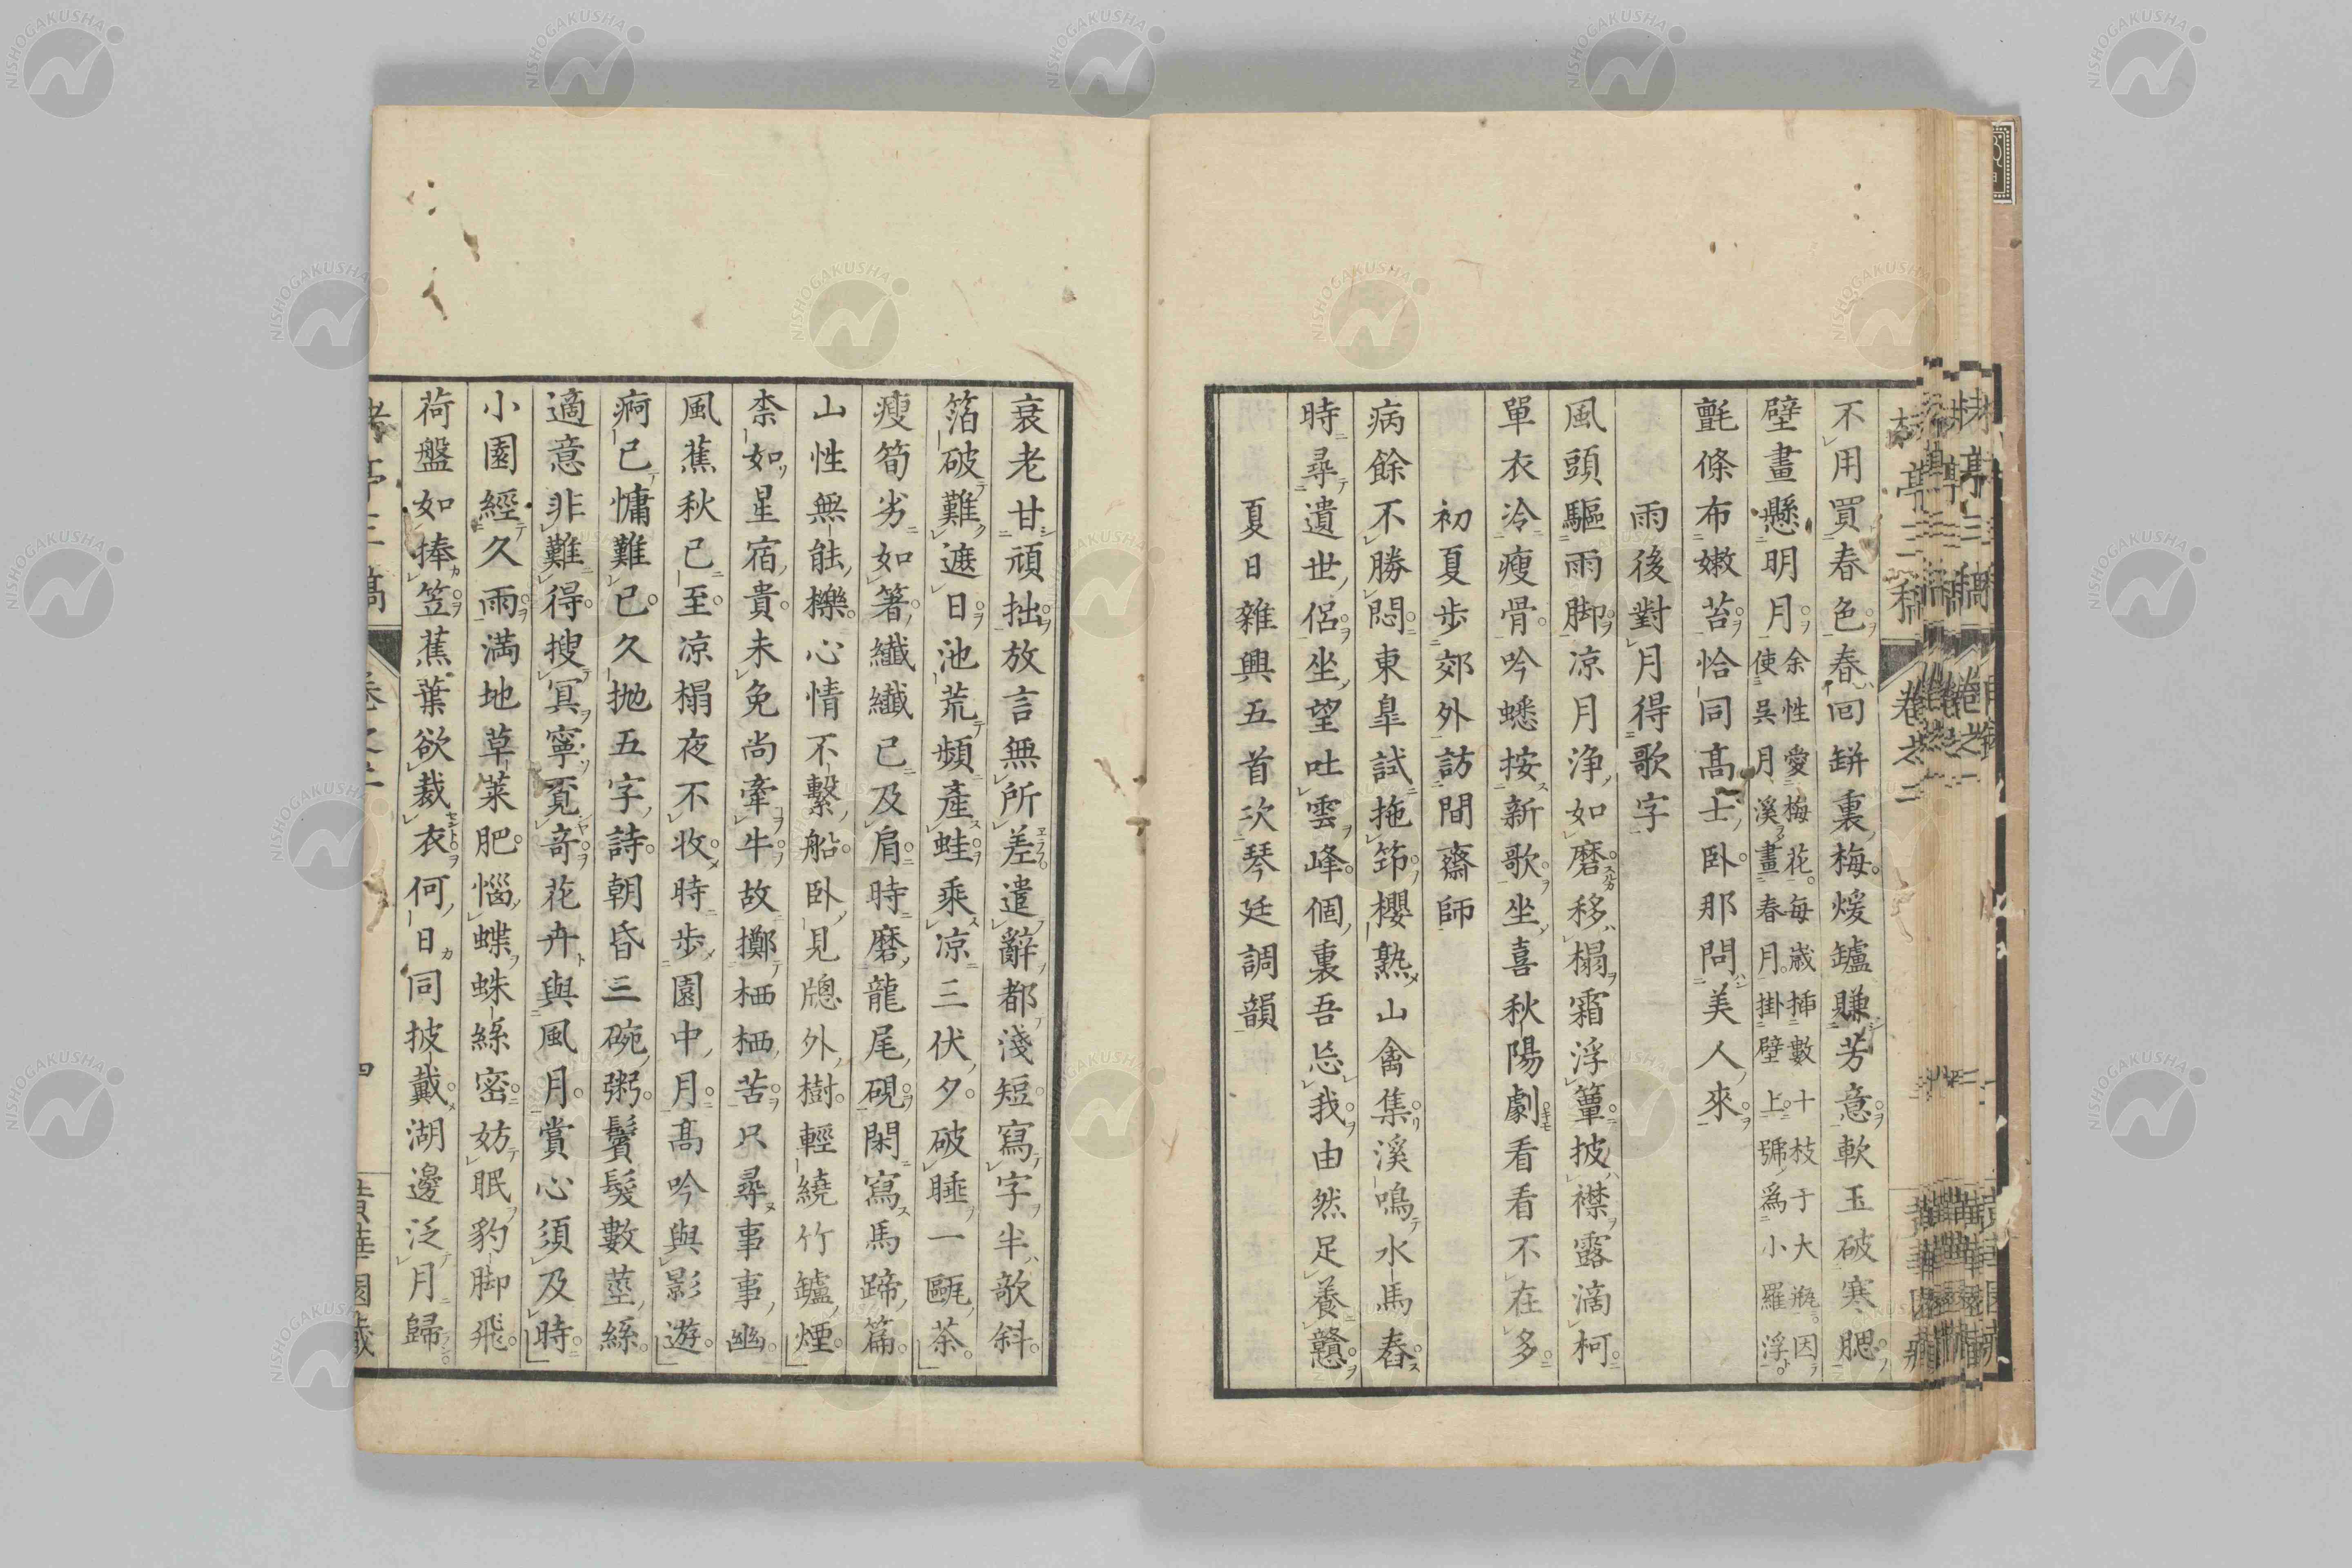 不用買春色春回缾裏梅煖罏賺芳意軟玉破寒腮
壁畫懸明月余性愛梅花每歲揷數十枝于大瓶因
使吳月溪畫春月掛壁上號爲小羅浮
氈條布嫩苔恰同高士臥那問美人來
雨後對月得歌字
風頭驅雨脚凉月淨如磨移榻霜浮簟披襟露滴柯
單衣冷瘦骨吟蟋按新歌坐喜秋陽劇看看不在多
初夏步郊外訪間齋師
病餘不勝悶東皐試拖筇櫻熟山禽集溪鳴水馬舂
時尋遺世侶坐望吐雲峰個裏吾忘我由然足養戇
夏日雜興五首次琴廷調韻
衰老甘頑拙放言無所差遣辭都淺短寫字半歌斜
箔破難遮日池荒頻產蛙乘凉三伏夕破睡一甌茶
瘦筍劣如箸纖纖已及肩時磨龍尾硯閑寫馬蹄篇
山性無能櫟心情不繫船臥見牕外樹輕繞竹罏煙
柰如星宿貴未免尚牽牛故擲栖栖苦只尋事事幽
風蕉秋已至凉榻夜不收時步園中月高吟與影遊
痾已慵難已久抛五字詩朝昏三碗粥鬢髮數莖絲
適意非難得搜冥寧覓奇花卉與風月賞心須及時
小園經久雨滿地草萊肥惱蝶蛛絲密妨眠豹脚飛
荷盤如捧笠蕉葉欲裁衣何日同披戴湖邊泛月歸
NISHOGAKUSHA